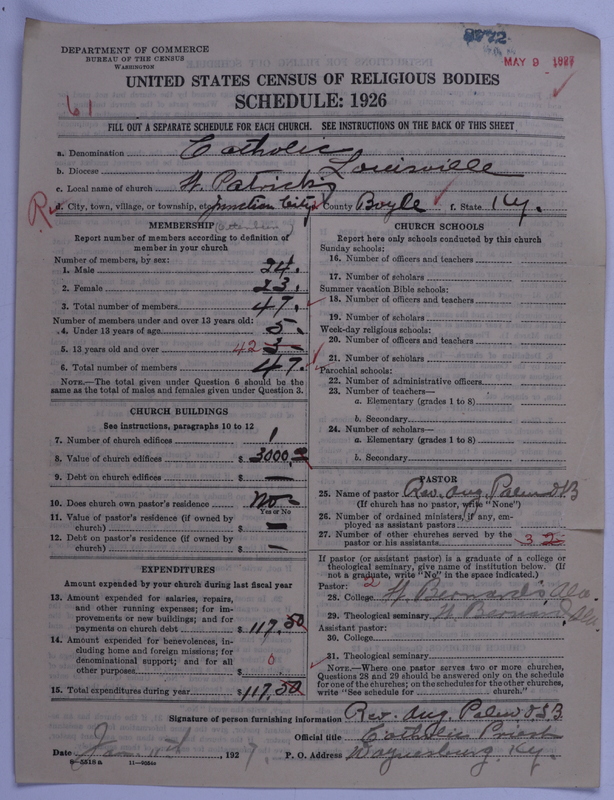 DEPARTMENT OF COMMERCE
BUREAU OF THE CENSUS
WASHINGTON
MAY 9 1927
UNITED STATES CENSUS OF RELIGIOUS BODIES
SCHEDULE: 1926
61
FILL OUT A SEPARATE SCHEDULE FOR EACH CHURCH. SEE INSTRUCTIONS ON THE BACK OF THIS SHEET
a. Denomination Catholic
b. Diocese Louisville
c. Local name of church St. Patrick's
d. City, town, village, or township, etc. Junction City County Boyle f. State Ky.
MEMBERSHIP
Report number of members according to definition of
member in your church
Number of members, by sex:
1. Male 24.
2. Female 23.
3. Total number of members 47.
Number of members under and over 13 years old:
4. Under 13 years of age 5
5. 13 years old and over 42
6. Total number of members 47.
NOTE.—The total given under Question 6 should be the
same as the total of males and females given under Question 3.
CHURCH BUILDINGS
See instructions, paragraphs 10 to 12
7. Number of church edifices 1
8. Value of church edifices $ 3000.
9. Debt on church edifices $ —
10. Does church own pastor's residence No
Yes or No
11. Value of pastor's residence (if owned by
church) $ —
12. Debt on pastor's residence (if owned by
church) $ —
EXPENDITURES
Amount expended by your church during last fiscal year
13. Amount expended for salaries, repairs,
and other running expenses; for im-
provements or new buildings; and for
payments on church debt $ 117.50
14. Amount expended for benevolences, in-
cluding home and foreign missions; for
denominational support; and for all
other purposes $ 0
15. Total expenditures during year $ 117.50
CHURCH SCHOOLS
Report here only schools conducted by this church
Sunday schools:
16. Number of officers and teachers
17. Number of scholars
Summer vacation Bible schools:
18. Number of officers and teachers
19. Number of scholars
Week-day religious schools:
20. Number of officers and teachers
21. Number of scholars
Parochial schools:
22. Number of administrative officers
23. Number of teachers—
a. Elementary (grades 1 to 8)
b. Secondary
24. Number of scholars—
a. Elementary (grades 1 to 8)
b. Secondary
PASTOR
25. Name of pastor Rev. Aug. Palm OSB
(If church has no pastor, write "None")
26. Number of ordained ministers, if any, em-
ployed as assistant pastors
27. Number of other churches served by the
pastor or his assistants
If pastor (or assistant pastor) is a graduate of a college or
theological seminary, give name of institution below. (If
not a graduate, write "No" in the space indicated.)
Pastor:
28. College St. Bernard's, Ala.
29. Theological seminary St. Bernard, Ala.
Assistant pastor:
30. College
31. Theological seminary
NOTE.—Where one pastor serves two or more churches,
Questions 28 and 29 should be answered only on the schedule
for one of the churches; on the schedules for the other churches,
write "See schedule for church."
Signature of person furnishing information Rev. Aug. Palm OSB
Official title Catholic Priest
Date 1927. P. O. Address Waynesburg, Ky.
8—5518a 11—9504a